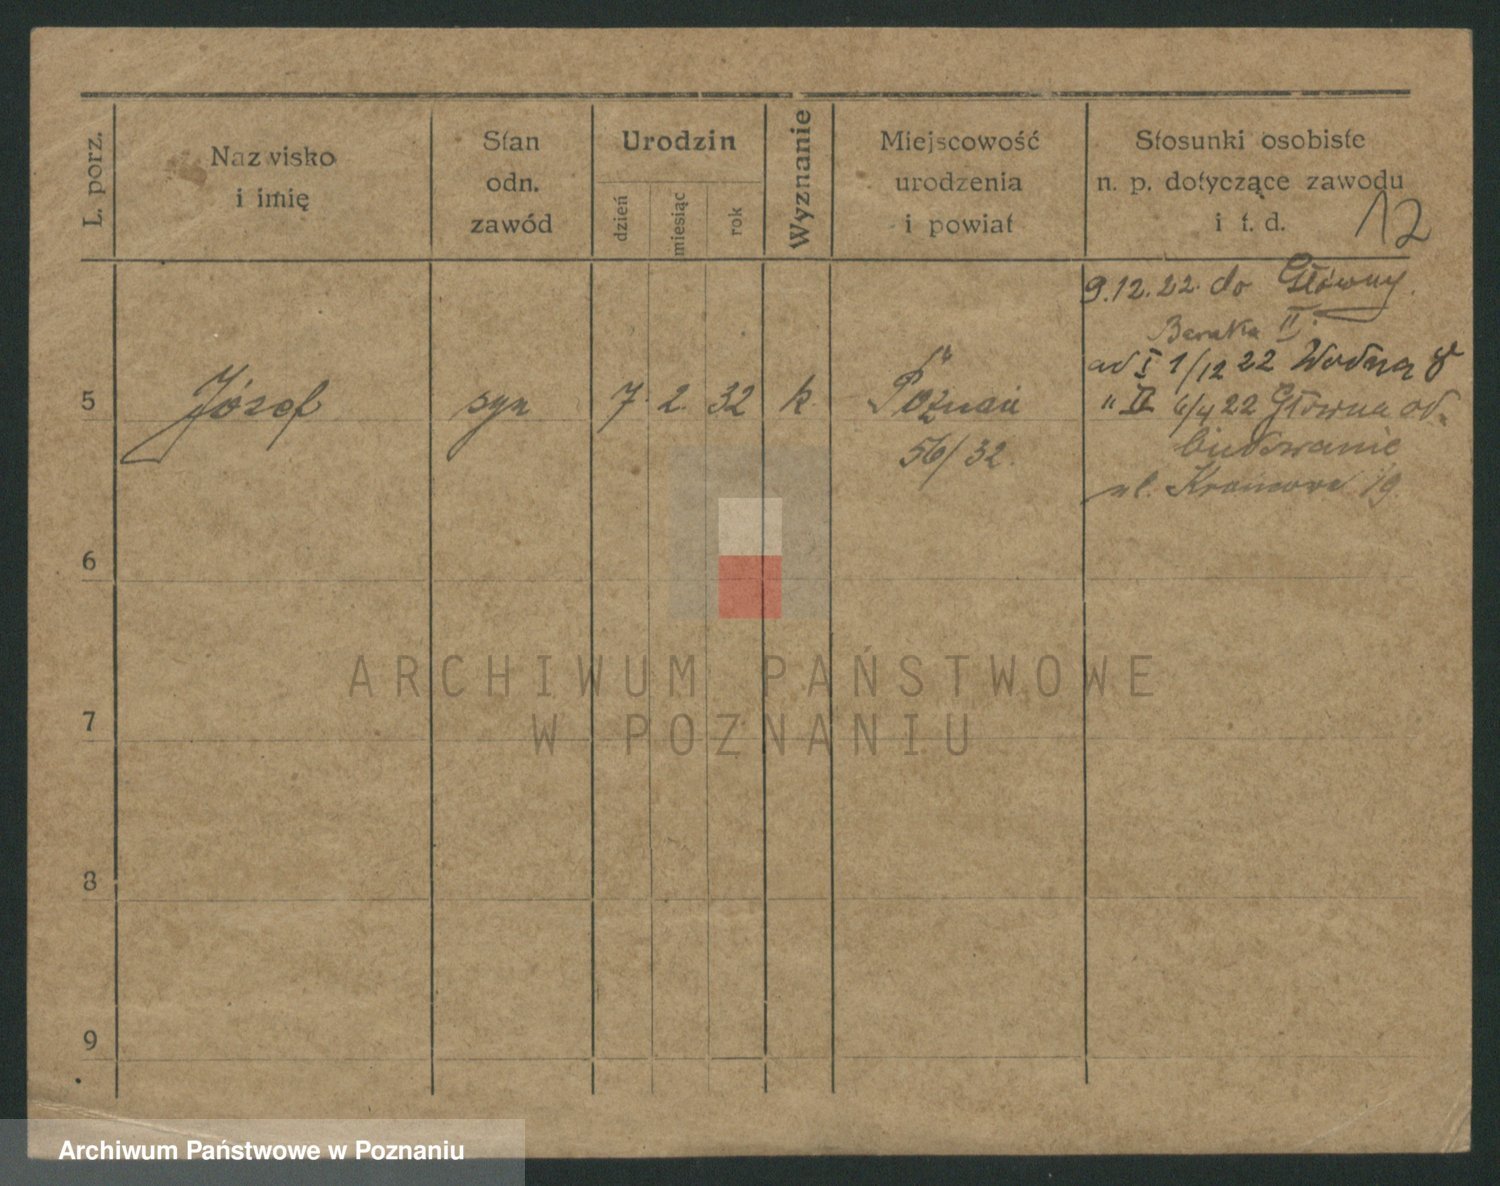 L. porz.
Nazwisko
i imię
Stan
odn.
zawód
Urodzin
dzień
miesiąc
rok
Wyznanie
Miejscowość
urodzenia
i powiat
Stosunki osobiste
n. p. dotyczące zawodu
i t. d.
12
9.12.22. do Główny.
Baraka II.
ad I 1/12 22 Wodna 8
5
Józef
syn
7. 2. 32
k.
Poznań
" II 6/4 22 Główna od-
budowanie
56/32.
ul. 19.
6
7
8
9
ARCHIWUM PAŃSTWOWE
W POZNANIU
Archiwum Państwowe w Poznaniu